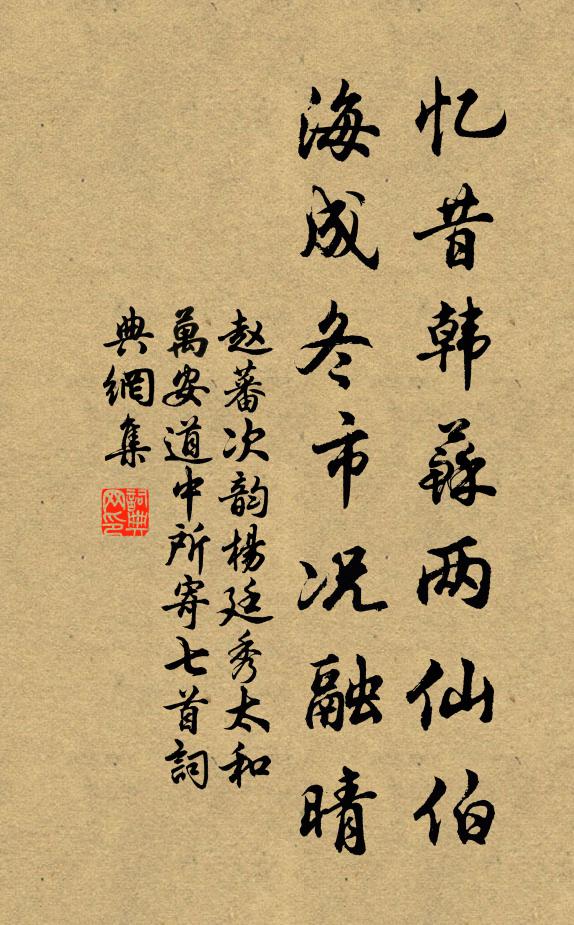 忆昔韩蘇两仙伯
海成冬市况融晴
赵蕃次韵楊廷秀太和
萬安道中所寄七首詞
典網集
詞典网印